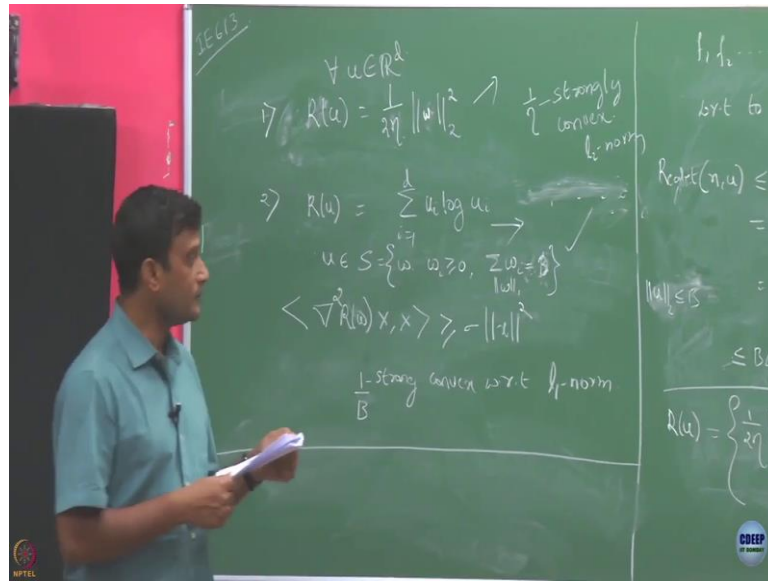 IE613
∀ u∈ℝ^d
1) R(u) = 1/2η ||w||₂² → 1/η-strongly
convex
l₂-norm
2) R(u) = Σ_{i=1}^{d} u_i log u_i →
u∈ S={w: w_i ≥ 0, Σw_i = B}
||w||₁
< ∇²R(w) x, x > ≥ - ||x||²
1/B - strong convex w.r.t l₁-norm
f₁ f₂ ....
w.r.t to
Regret(n,u) ≤
=
||u||₂ ≤ B =
≤ B
R(u) = { 1/2η
NPTEL
CDEEP
IIT BOMBAY